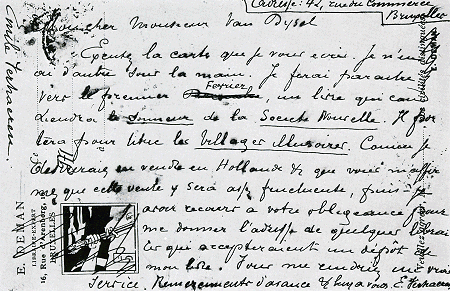 (adresse: 42, rue du commerce
Bruxelles
Mon cher Monsieur Van Dyssel
la carte que je vous écris. Je n'en
ai d'autre sous la main. Je ferai paraître
vers le premier Février, un livre que con
tiendra le sonneur de la Société Nouvelle. Il por
tera pour titre les Villages Illusoires. Comme je
désirerais en vendre en Hollande & que vous m'affir
mez que cette vente y sera assez fructueuse, puis-je
avoir recours à votre obligeance pour
me donner l'adresse de quelques librai
res qui accepteraient un dépôt de
mon livre. Vous me rendriez un vrai
service. Remerciements d'avance & bien à vous. E. Verhaeren
Emile Verhaeren
E. DEMAN
LIBRAIRE-EXPERT
16, Rue d'Arenberg, 16
BRUXELLES